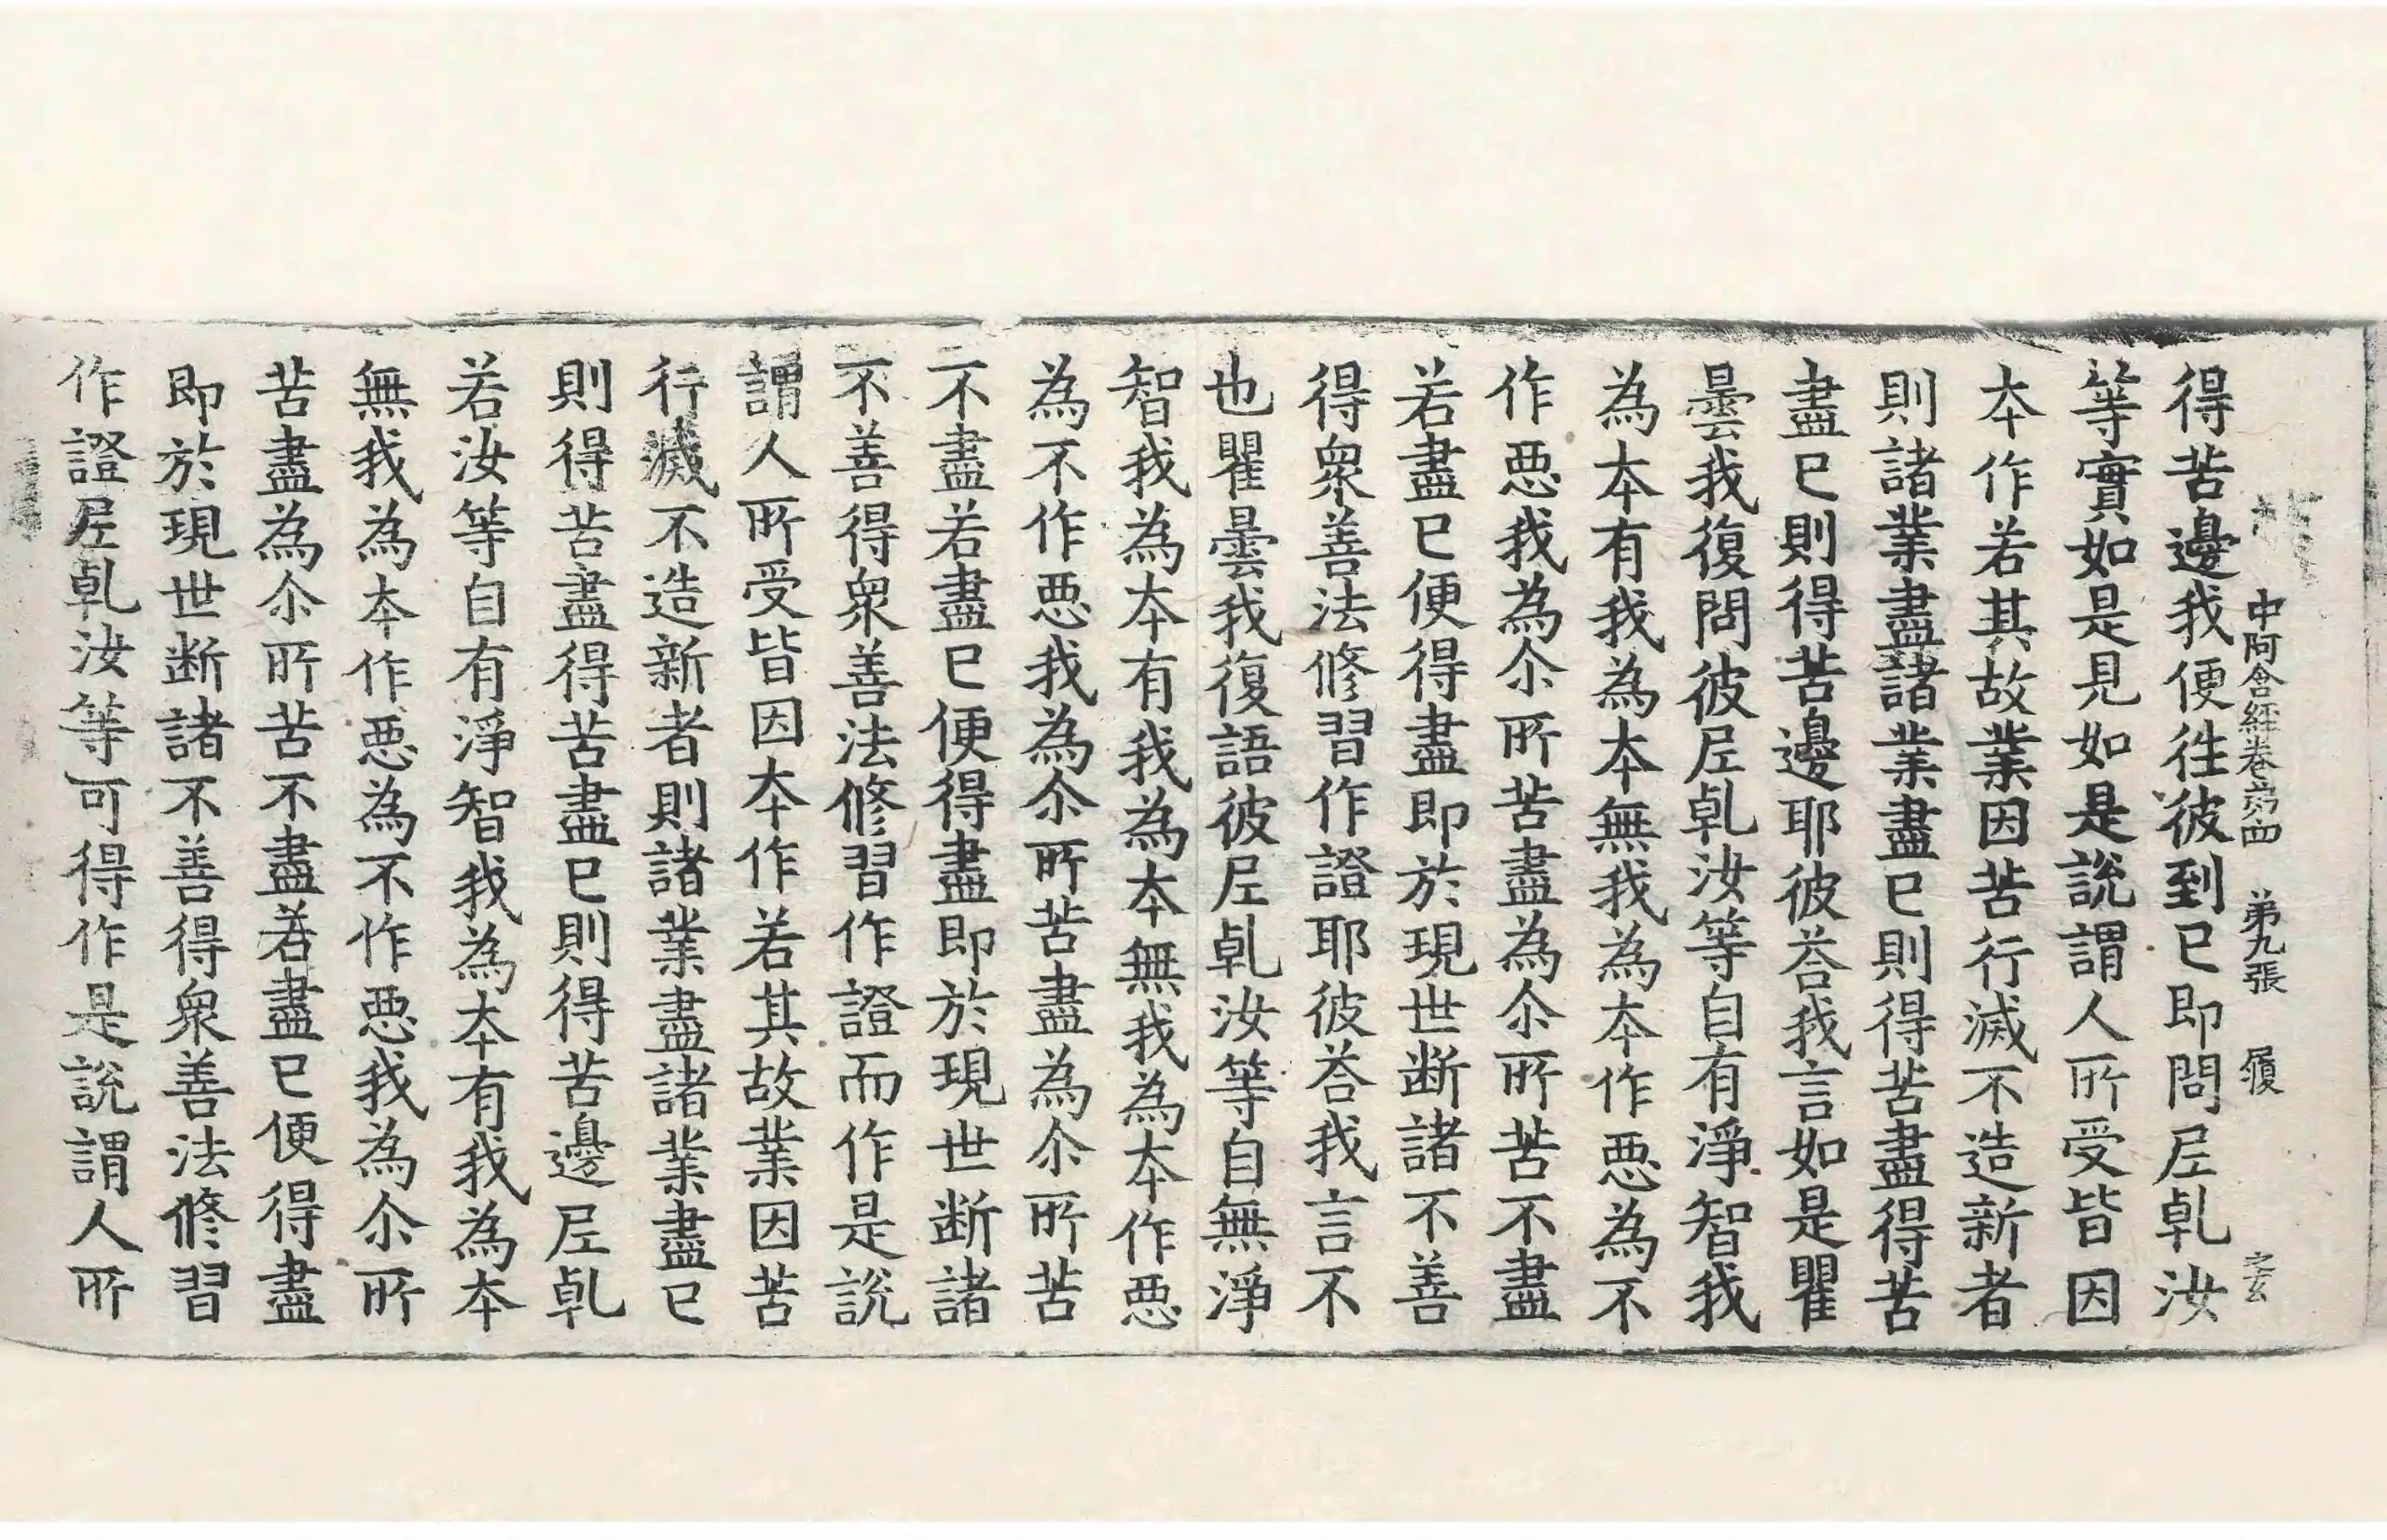 中阿含經卷苐四 苐九張 履 之玄
得苦邊我便徃彼到已即問𡰱乹汝
等實如是見如是說謂人所受皆因
本作若其故業因苦行滅不造新者
則諸業盡諸業盡已則得苦盡得苦
盡已則得苦邊耶彼荅我言如是瞿
曇我復問彼𡰱乹汝等自有淨智我
為本有我為本無我為本作惡為不
作惡我為尒所苦盡為尒所苦不盡
若盡已便得盡即於現世断諸不善
得衆善法修習作證耶彼荅我言不
也瞿曇我復語彼𡰱乹汝等自無淨
智我為本有我為本無我為本作惡
為不作惡我為尒所苦盡為尒所苦
不盡若盡已便得盡即於現世断諸
不善得衆善法修習作證而作是說
謂人所受皆因本作若其故業因苦
行滅不造新者則諸業盡諸業盡已
則得苦盡得苦盡已則得苦邊𡰱乹
若汝等自有淨智我為本有我為本
無我為本作惡為不作惡我為尒所
苦盡為尒所苦不盡若盡已便得盡
即於現世断諸不善得衆善法修習
作證𡰱乹汝等可得作是說謂人所